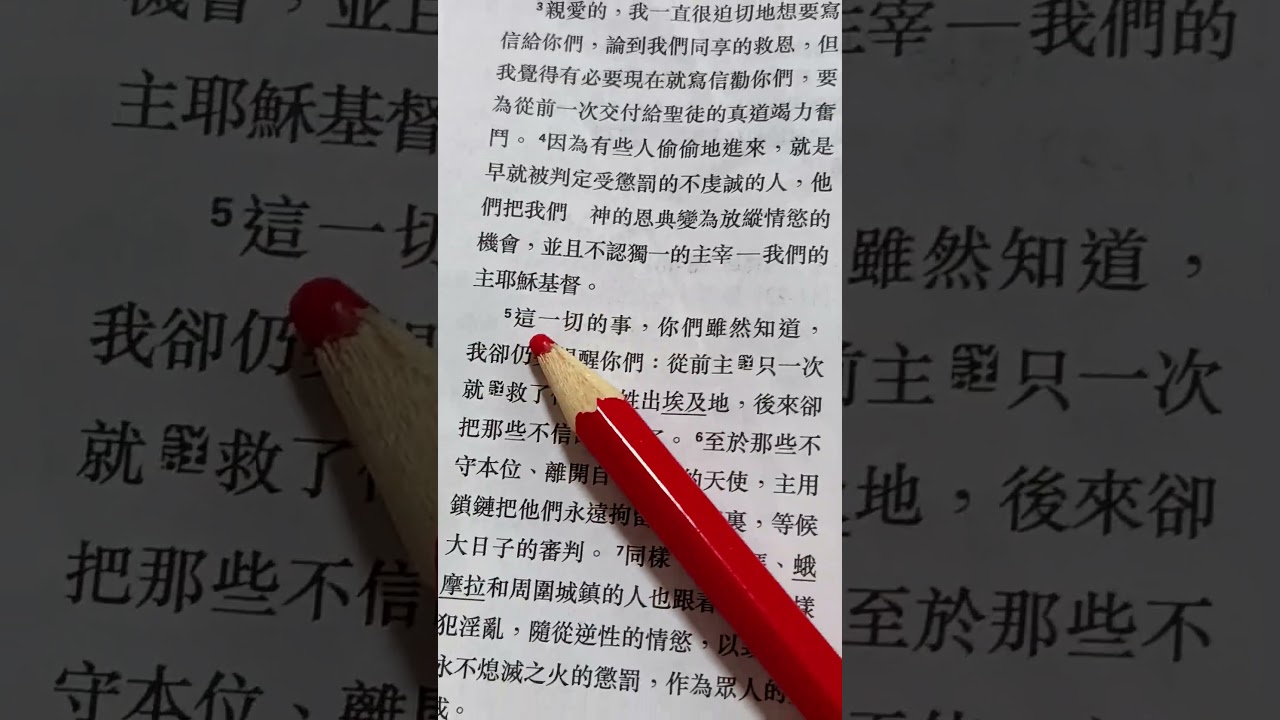 3親愛的，我一直很迫切地想要寫
信給你們，論到我們同享的救恩，但
我覺得有必要現在就寫信勸你們，要
為從前一次交付給聖徒的真道竭力奮
鬥。4因為有些人偷偷地進來，就是
早就被判定受懲罰的不虔誠的人，他
們把我們　神的恩典變為放縱情慾的
機會，並且不認獨一的主宰—我們的
主耶穌基督。
5這一切的事，你們雖然知道，
我卻仍 醒你們：從前主 只一次
就 救了 姓出埃及地，後來卻
把那些不信 了。6至於那些不
守本位、離開自 的天使，主用
鎖鏈把他們永遠拘留 裏，等候
大日子的審判。7同樣 、蛾
摩拉和周圍城鎮的人也跟着 樣
犯淫亂，隨從逆性的情慾，以
永不熄滅之火的懲罰，作為眾人的
戒。